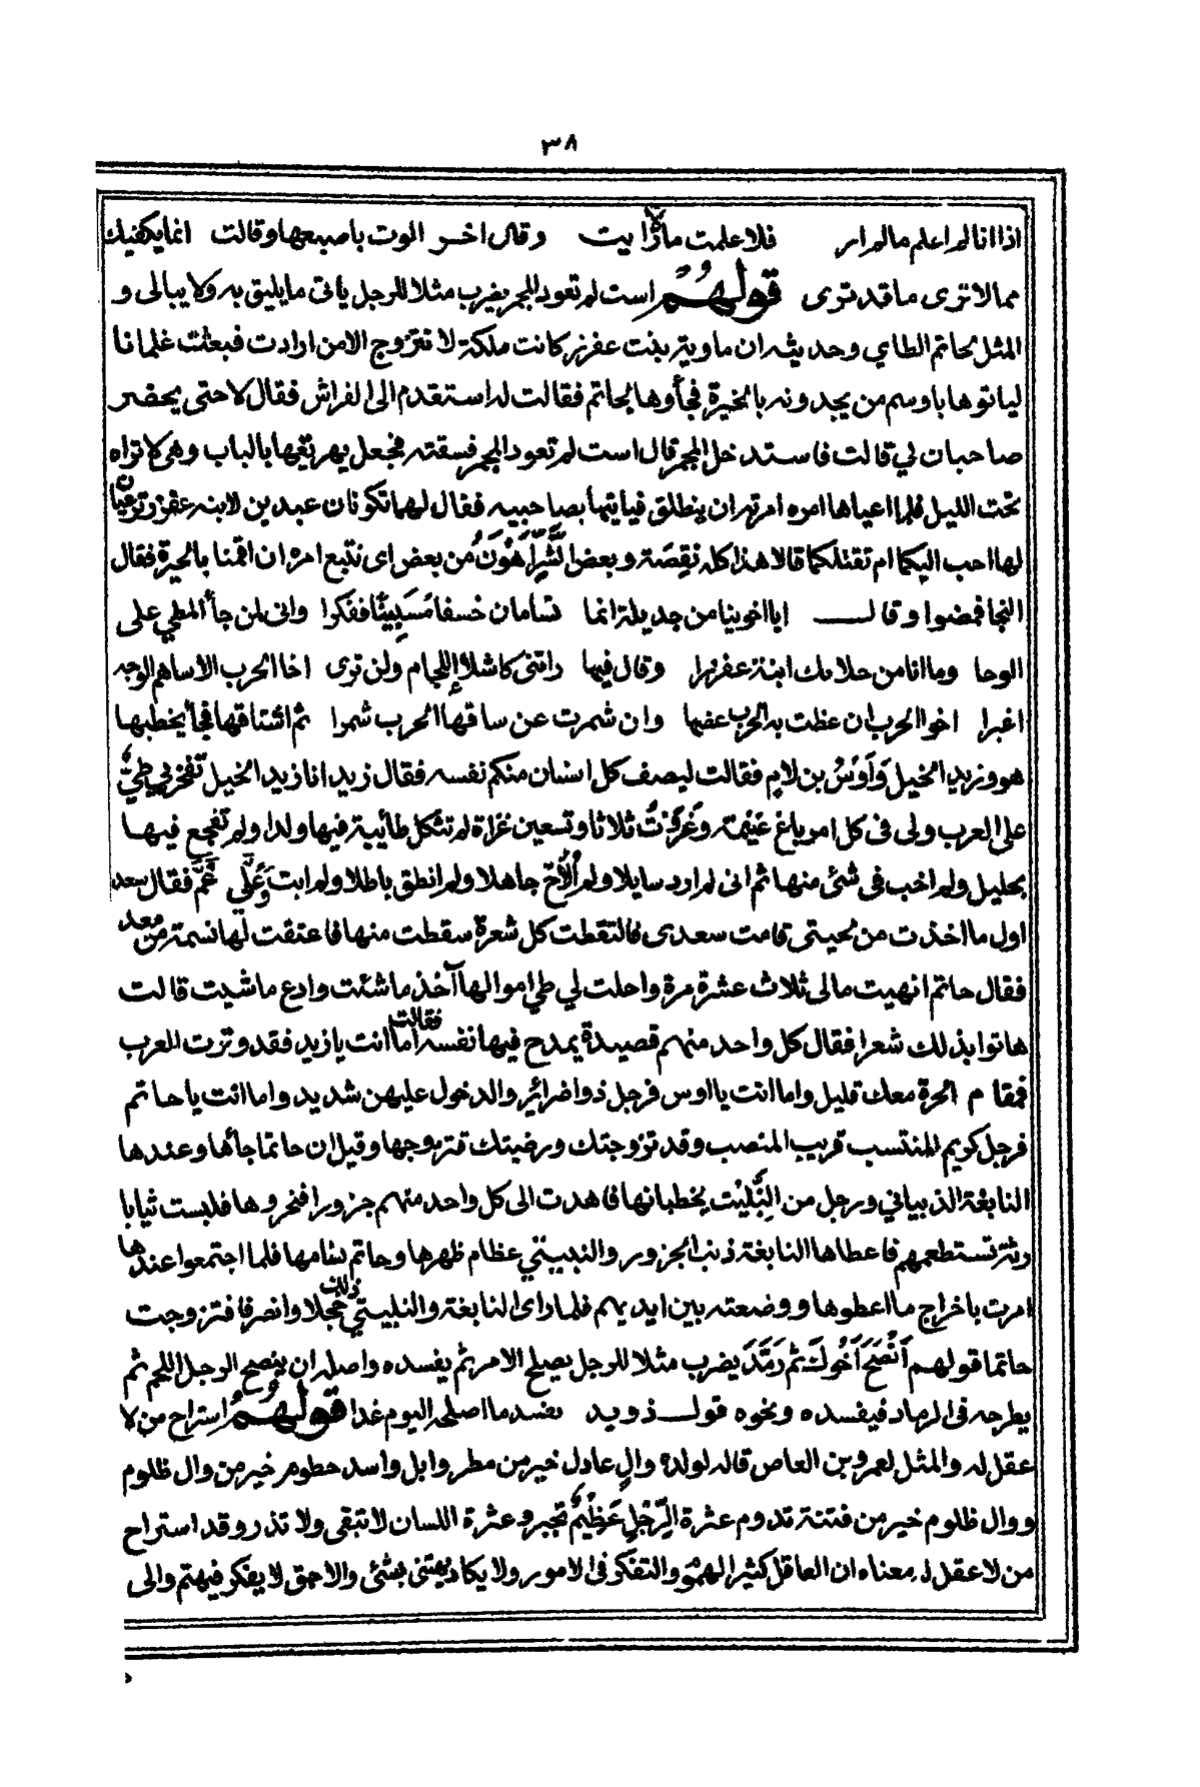 ٣٨
اذا انا لم اعلم ما لم ار فلا علمت ما رايت وقال اخر الموت باصبعها وقالت انما يكفيك
مما لا ترى ما قد ترى قولهم است لم تعود المجمر يضرب مثلا للرجل ياتى ما يليق به ولا يبالى و
المثل لحاتم الطاي وحديثه ان ماوية بنت عفزر كانت ملكة لا تتزوج الا من ارادت فبعثت غلمانا
لياتوها باوسم من يجدونه بالحيرة فجأوها بحاتم فقالت له استقدم الى الفراش فقال لا حتى يحضر
صاحبان لي قالت فاستدخل المجمر قال است لم تعود المجمر فسقته فجعل يهريقها بالباب وهى لا تراه
تحت الليل فلما اعياها امره امرته ان ينطلق فياتيها بصاحبيه فقال لهما تكونان عبدين لابنه عفزر ترعيان
لها احب اليكما ام تقتلكما قالا هذا كله نقيصة وبعض الشر اهون من بعض اى نتبع امره ان اقمنا بالحيرة فقال
النجا فمضوا وقال ايا اخوينا من جديلة انما تسامان خسفا مسبيئا ففكرا وانى لمن جأ المطي على
الوجا وما انا من حلانك ابنة عفزرا وقال فيها راتنى كاشلا اللجام ولن ترى اخا الحرب الا ساهم الوجه
اغبرا اخو الحرب ان عظت به الحرب عضها وان شمرت عن ساقها الحرب شمرا ثم اشتاقها فجأ يخطبها
هو وزيد الخيل واوس بن لام فقالت ليصف كل انسان منكم نفسه فقال زيد انا زيد الخيل تفخر بي طيّ
على العرب ولى فى كل امر باغ غنيمة وغزوت ثلاثا وتسعين غزاة لم تثكل طائية فيها ولدا ولم تفجع فيها
بحليل ولم اخب فى شئ منها ثم انى لم ارد سايلا ولم الاح جاهلا ولم انطق باطلا ولم ابت وعلي غم فقال سعد
اول ما اخذت من لحيتى قامت سعدى فالتقطت كل شعرة سقطت منها فاعتقت لها نسمة من معد
فقال حاتم انهبت مالى ثلاث عشرة مرة واحلت لي طي اموالها آخذ ما شئت وادع ما شيت قالت
هاتوا بذلك شعرا فقال كل واحد منهم قصيدة يمدح فيها نفسه فقالت اما انت يا زيد فقد وترت العرب
فمقام الحرة معك قليل واما انت يا اوس فرجل ذو ضرائر والدخول عليهن شديد واما انت يا حاتم
فرجل كريم المنتسب قريب المنصب وقد تزوجتك ورضيتك فتزوجها وقيل ان حاتما جأها وعندها
النابغة الذبياني ورجل من النبيت يخطبانها فاهدت الى كل واحد منهم جزورا فنحروها فلبست ثيابا
رثة تستطعمهم فاعطاها النابغة ذنب الجزور والنبيتي عظام ظهرها وحاتم سنامها فلما اجتمعوا عندها
امرت باخراج ما اعطوها ووضعته بين ايديهم فلما راى النابغة والنبيتي ذلك خجلا وانصرفا فتزوجت
حاتما قولهم انضج اخوك ثم رمّد يضرب مثلا للرجل يصلح الامر ثم يفسده واصله ان ينضج الرجل اللحم ثم
يطرحه فى الرماد فيفسده ونحوه قول ذويد يفسد ما اصلحه اليوم غدا قولهم استراح من لا
عقل له والمثل لعمرو بن العاص قاله لولده وال عادل خير من مطر وابل واسد حطوم خير من وال ظلوم
ووال ظلوم خير من فتنة تدوم عثرة الرجل عظيم تجبر وعثرة اللسان لا تبقى ولا تذر وقد استراح
من لا عقل له معناه ان العاقل كثير الهموم والتفكر فى الامور ولا يكاد يهتنى بشئى والاحمق لا يفكر فيهتم والى